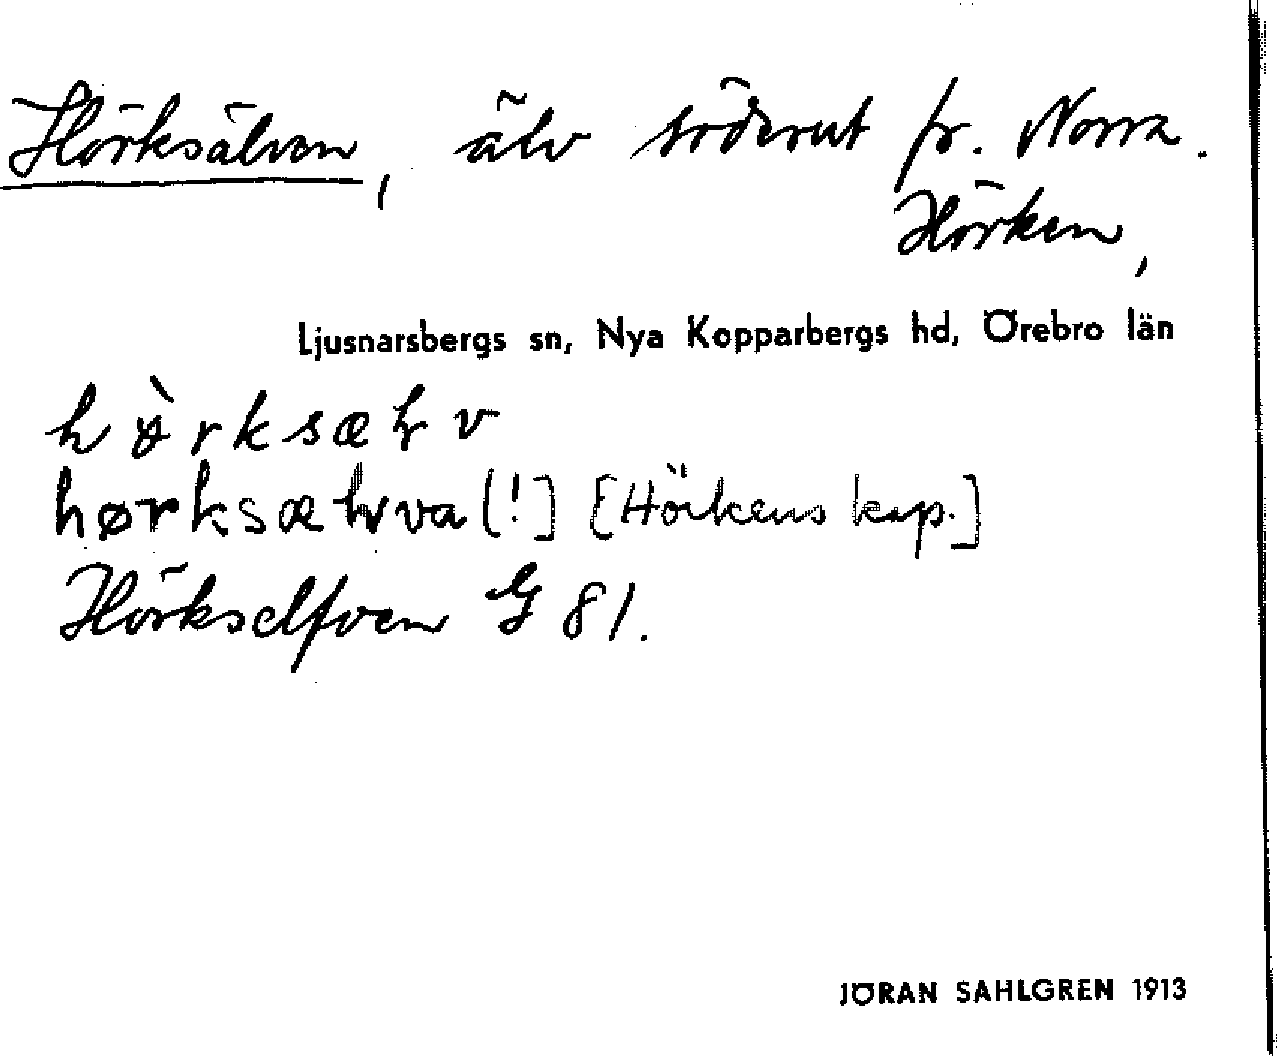 Hörksälven, älv söderut fr. Norra.
Hörken,
Ljusnarsbergs sn, Nya Kopparbergs hd, Örebro län
hø̀rksæɫv
hørksæɫva (!] [Hörkens kap.]
Hörkselfven G 81.
JÖRAN SAHLGREN 1913